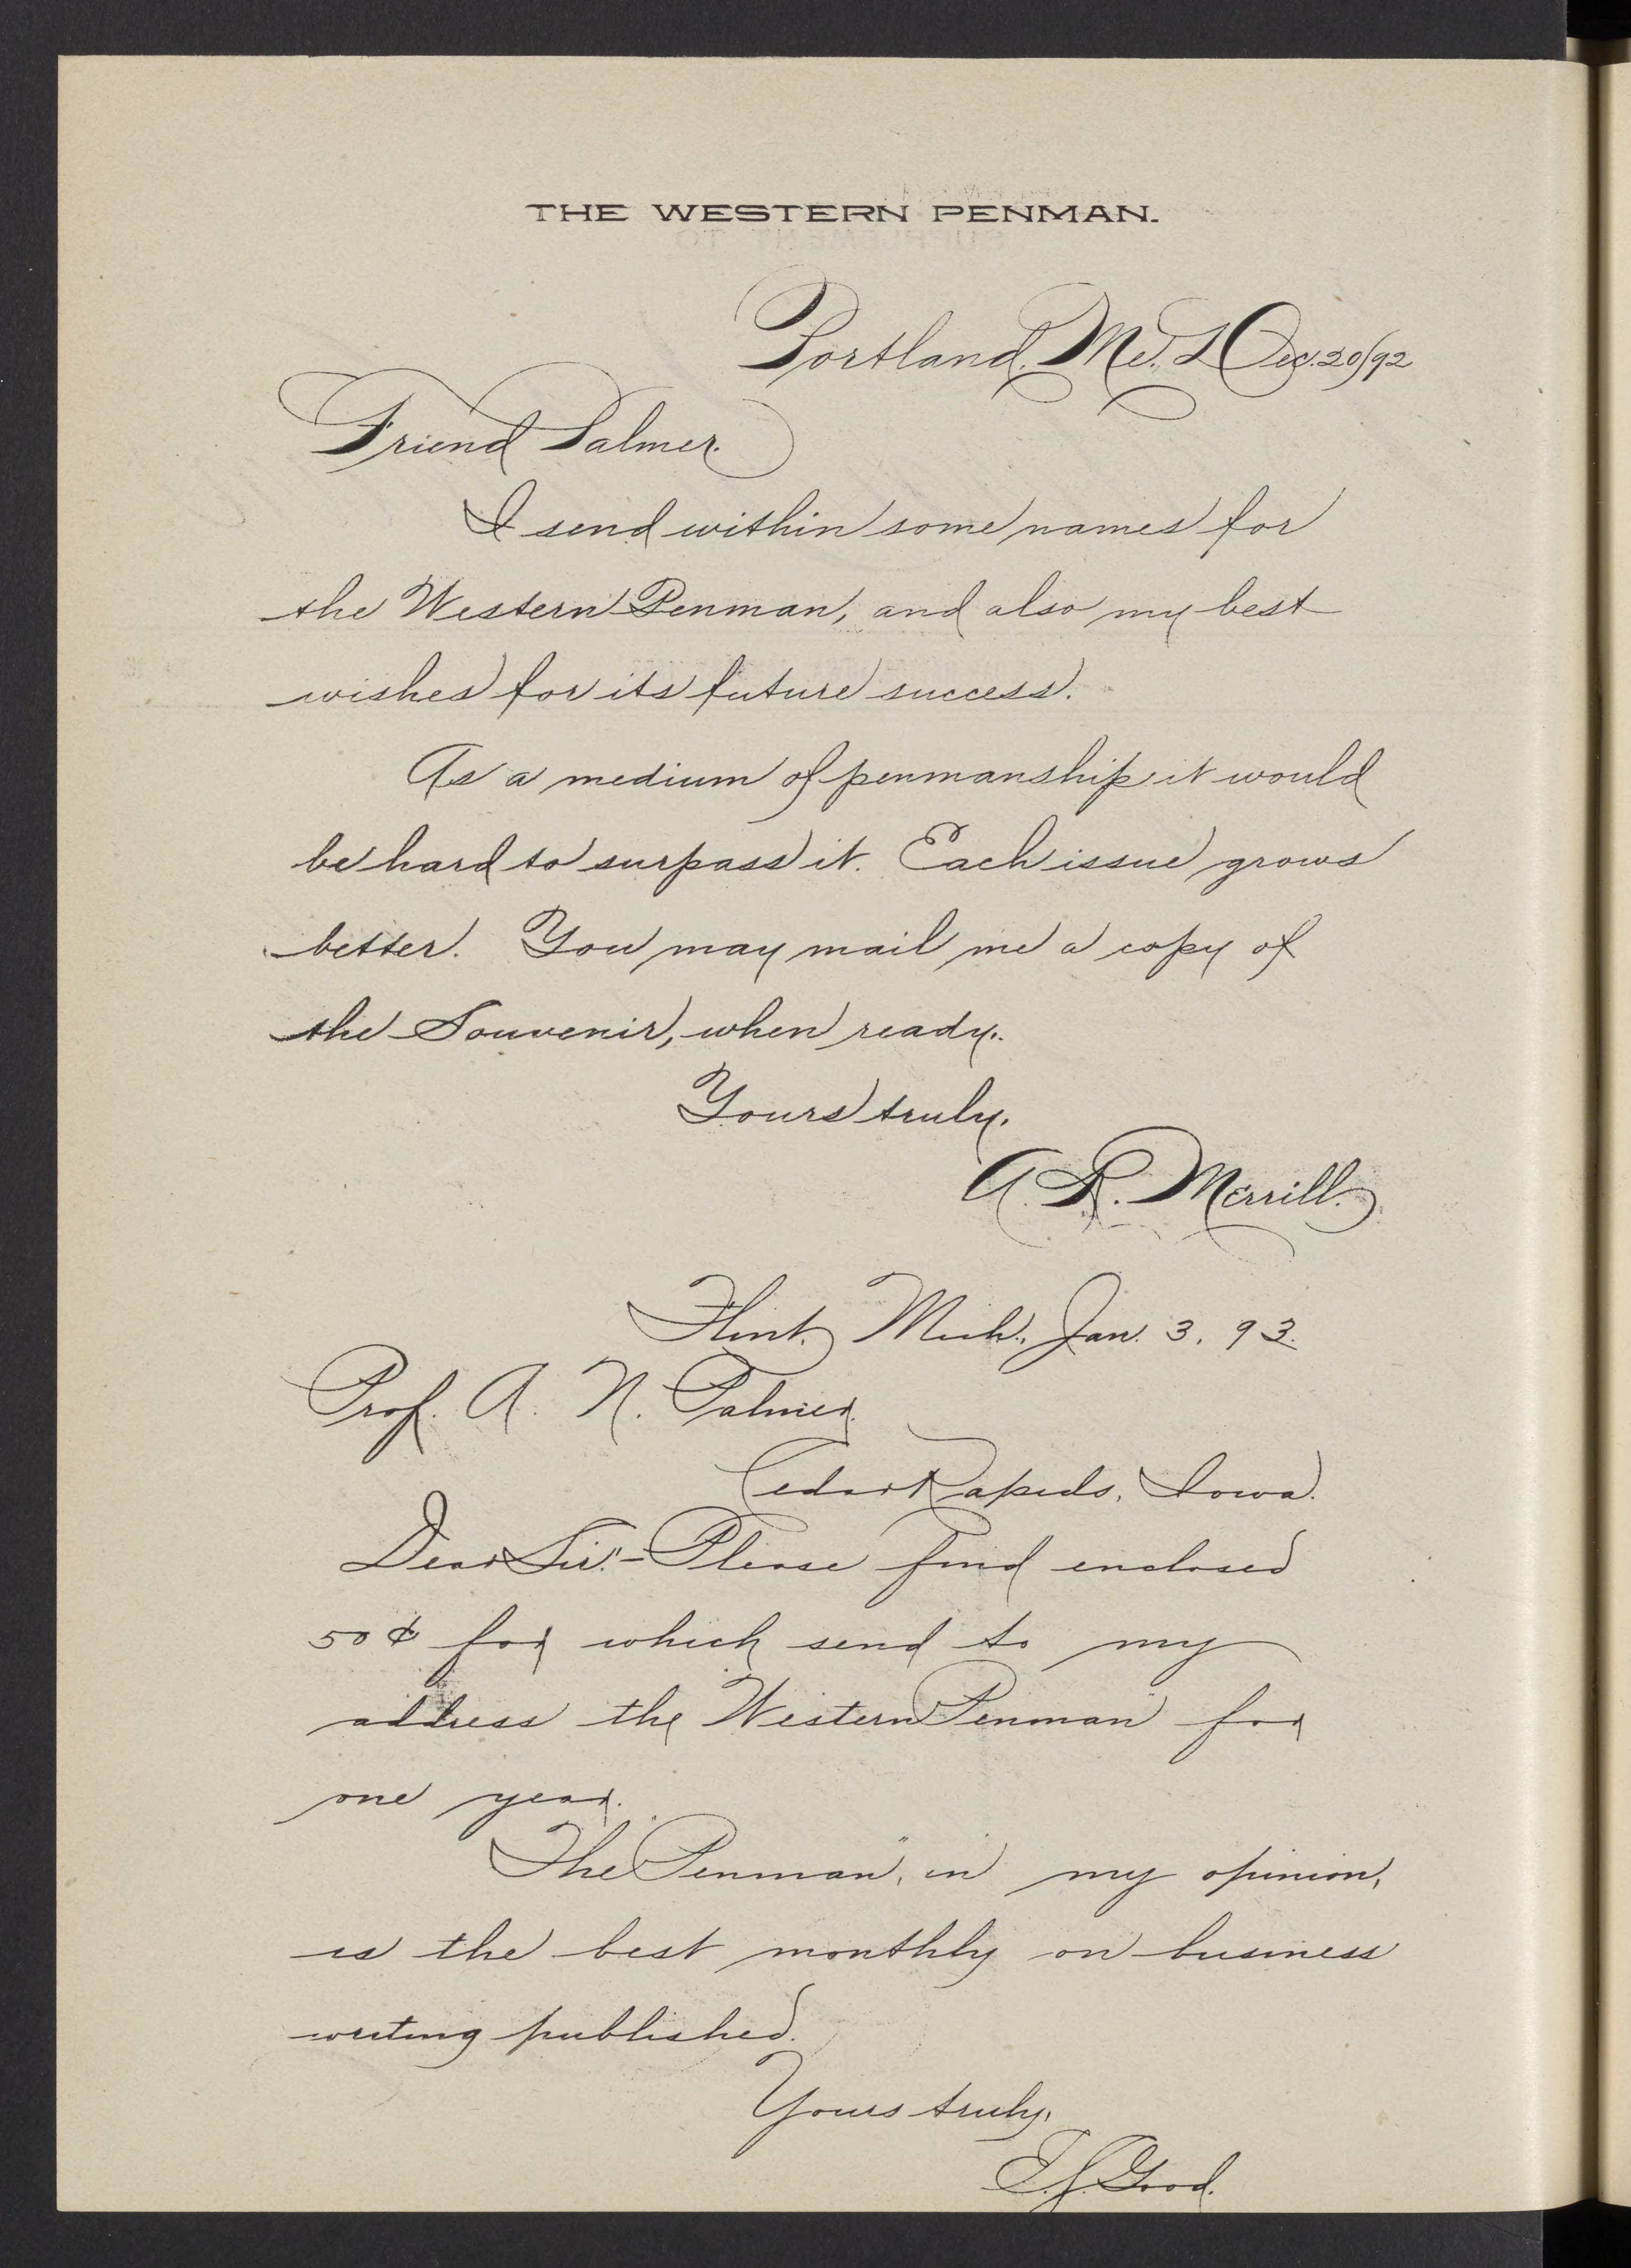 THE WESTERN PENMAN.
Portland, Me., Dec. 20/92
Friend Palmer.
I send within some names for
the Western Penman, and also my best
wishes for its future success.
As a medium of penmanship it would
be hard to surpass it. Each issue grows
better. You may mail me a copy of
the Souvenir, when ready.
Yours truly.
A. R. Merrill.
Flint, Mich., Jan. 3, 93.
Prof. A. N. Palmer
Cedar Rapids, Iowa.
Dear Sir:- Please find enclosed
50¢ for which send to my
address the Western Penman for
one year.
"The Penman", in my opinion,
is the best monthly on business
writing published.
Yours truly,
Good.